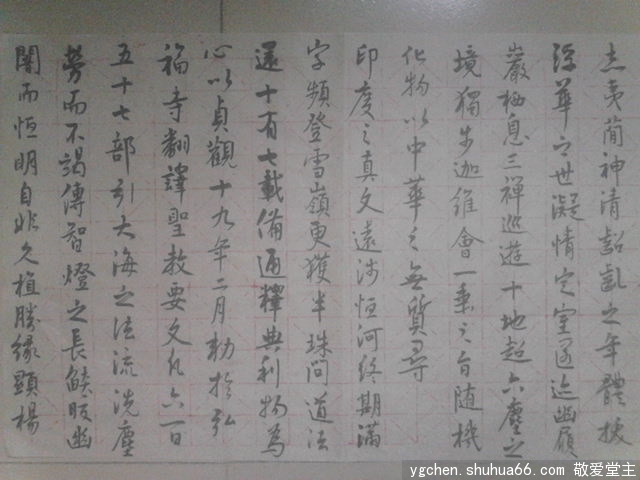 志夷簡神清齠齔之年體拔
浮華之世凝情定室迹幽
巖栖息三禪巡遊十地超六塵之
境獨步迦維會一乘之旨随機
化物以中華之無質尋
印度之真文遠涉恒河終期滿
字頻登雪嶺更獲半珠問道法
還十有七載備通釋典利物為
心以貞觀十九年二月勅於弘
福寺翻譯聖教要文凡六百
五十七部引大海之法流洗塵
勞而不竭傳智燈之長皎幽
闇而恒明自非久植勝緣顯楊
ygchen.shuhua66.com 敬爱堂主